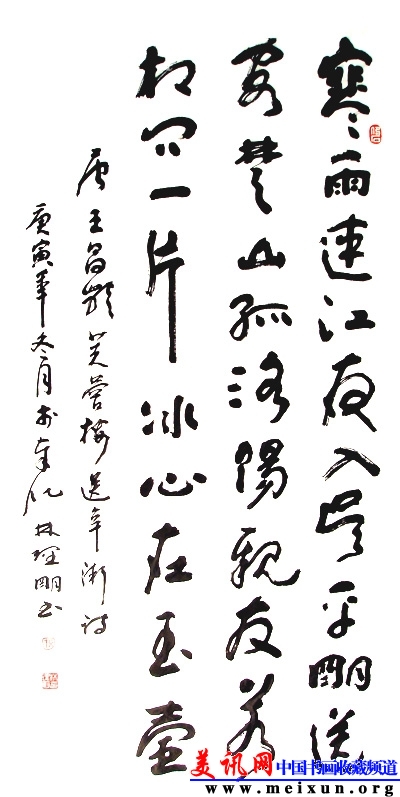 寒雨連江夜入吳平明送
客楚山孤洛陽親友若
相問一片冰心在玉壺
唐王昌齡芙蓉樓送辛漸詩
庚寅年冬月於奉化林明书
美讯网 中国书画收藏频道
www.meixun.org